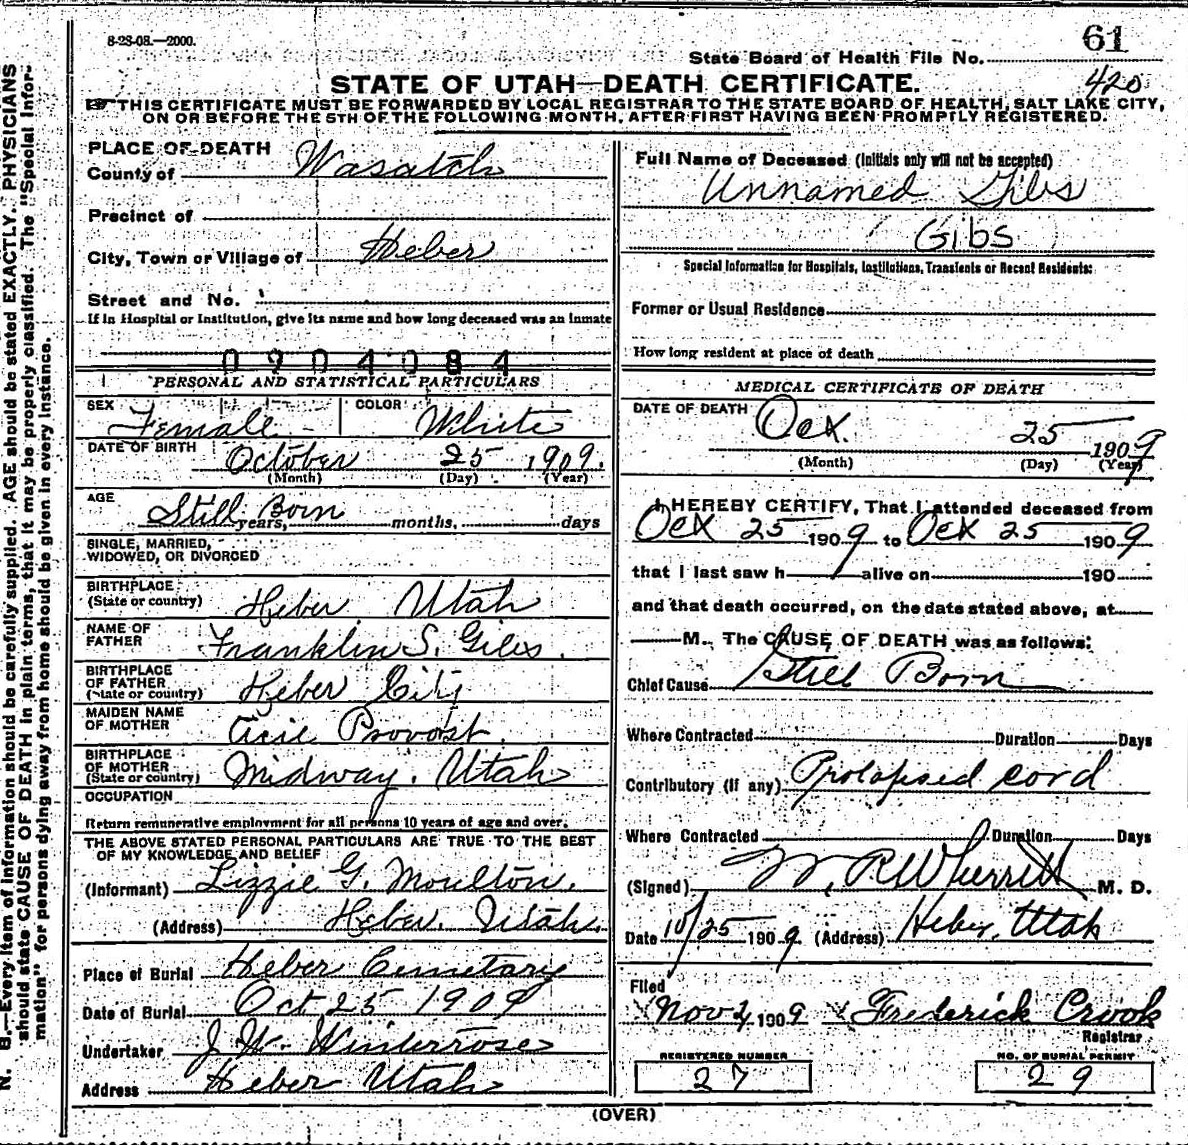 8-28-08.—2000.
61
State Board of Health File No.
420
STATE OF UTAH—DEATH CERTIFICATE.
☞ THIS CERTIFICATE MUST BE FORWARDED BY LOCAL REGISTRAR TO THE STATE BOARD OF HEALTH, SALT LAKE CITY,
ON OR BEFORE THE 5TH OF THE FOLLOWING MONTH, AFTER FIRST HAVING BEEN PROMPTLY REGISTERED.
N. B.—Every item of information should be carefully supplied. AGE should be stated EXACTLY. PHYSICIANS
should state CAUSE OF DEATH in plain terms, that it may be properly classified. The "Special Infor-
mation" for persons dying away from home should be given in every instance.
PLACE OF DEATH
County of Wasatch
Precinct of
City, Town or Village of Heber
Street and No.
If in Hospital or Institution, give its name and how long deceased was an inmate
0904084
PERSONAL AND STATISTICAL PARTICULARS
SEX Female COLOR White
DATE OF BIRTH October 25 1909.
(Month) (Day) (Year)
AGE Still Born
years, months, days
SINGLE, MARRIED,
WIDOWED, OR DIVORCED
BIRTHPLACE
(State or country) Heber Utah
NAME OF
FATHER Franklin S. Giles.
BIRTHPLACE
OF FATHER
(State or country) Heber City
MAIDEN NAME
OF MOTHER Acil Provost.
BIRTHPLACE
OF MOTHER
(State or country) Midway. Utah
OCCUPATION
Return remunerative employment for all persons 10 years of age and over.
THE ABOVE STATED PERSONAL PARTICULARS ARE TRUE TO THE BEST
OF MY KNOWLEDGE AND BELIEF
(Informant) Lizzie G. Moulton.
(Address) Heber. Utah.
Place of Burial Heber Cemetary
Date of Burial Oct 25 1909
Undertaker J. W. Winterrose
Address Heber Utah
Full Name of Deceased (Initials only will not be accepted)
Unnamed Gibs
Gibs
Special Information for Hospitals, Institutions, Transients or Recent Residents:
Former or Usual Residence
How long resident at place of death
MEDICAL CERTIFICATE OF DEATH
DATE OF DEATH Oct. 25 1909
(Month) (Day) (Year)
I HEREBY CERTIFY, That I attended deceased from
Oct 25 1909 to Oct 25 1909
that I last saw h alive on 190
and that death occurred, on the date stated above, at
M. The CAUSE OF DEATH was as follows:
Chief Cause Still Born
Where Contracted Duration Days
Contributory (if any) Prolapsed cord
Where Contracted Duration Days
(Signed) W. R. Wherritt M. D.
Date 10/25 1909 (Address) Heber, Utah
Filed
Nov 2, 1909 Frederick Crook
Registrar
REGISTERED NUMBER
27
NO. OF BURIAL PERMIT
29
(OVER)